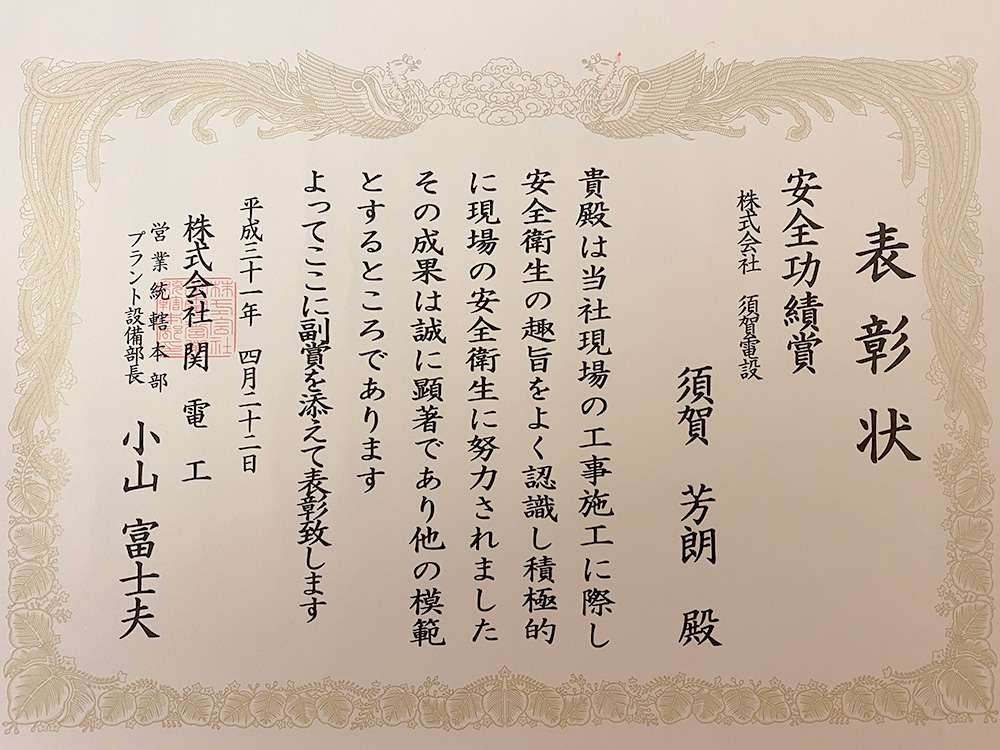 表彰状
安全功績賞
株式会社 須賀電設
須賀 芳朗 殿
貴殿は当社現場の工事施工に際し
安全衛生の趣旨をよく認識し積極的
に現場の安全衛生に努力されました
その成果は誠に顕著であり他の模範
とするところであります
よってここに副賞を添えて表彰致します
平成三十一年 四月二十二日
株式会社 関電工
営業統轄本部
プラント設備部長
小山 富士夫